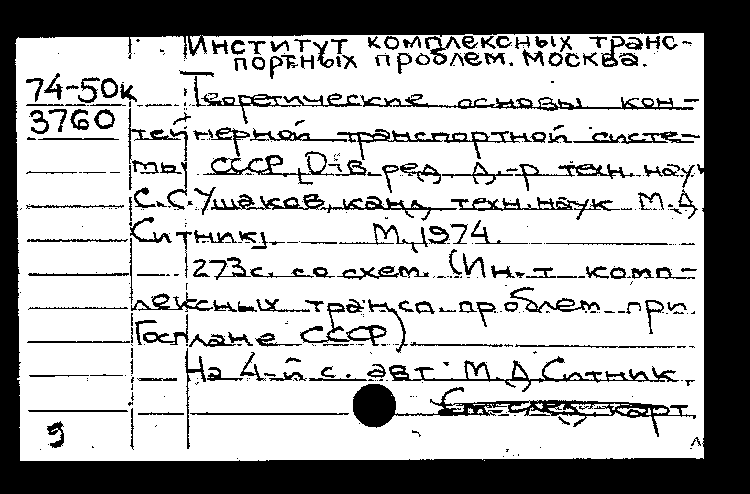 Институт комплексных транс-
портных проблем. Москва.
74-50к
Теоретические основы кон-
3760
тейнерной транспортной систе-
мы СССР. [О-в. ред. д.-р техн. наук
С.С. Ушаков, канд. техн. наук М.Д.
Ситник]. М., 1974.
273с. со схем. (Ин.-т комп-
лексных трансп. проблем при
Госплане СССР)
На 4-й с. авт: М.Д. Ситник,
См. след. карт.
9